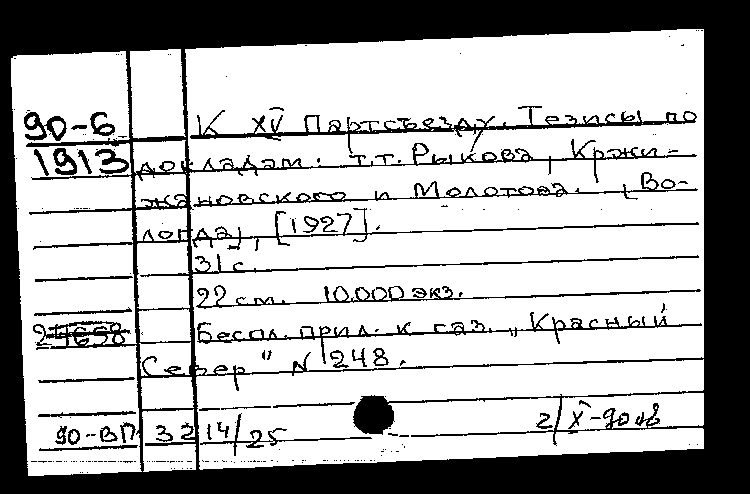 90-6
1913
К XV Партсъезду. Тезисы по
докладам: т.т. Рыкова, Кржи-
жановского и Молотова. [Во-
логда], [1927].
31 с.
22 см. 10.000 экз.
24658
Беспл. прил. к газ. „Красный
Север" N 248.
90-ВП 3214/25
2/X-90